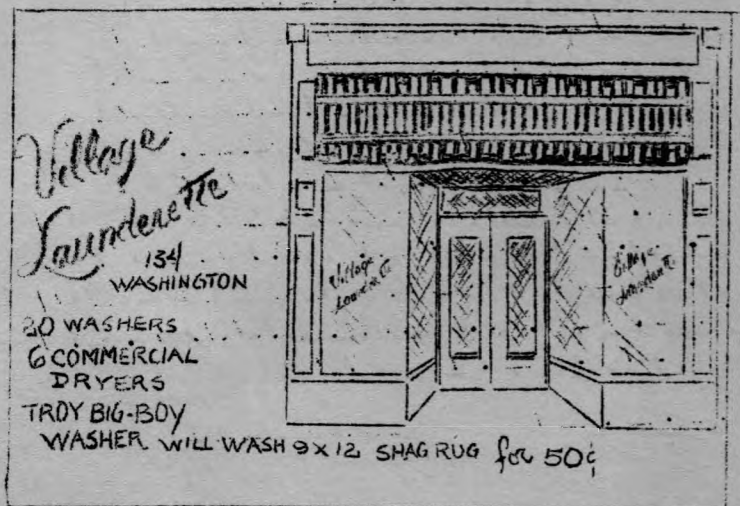 Village
Launderette
134
WASHINGTON
20 WASHERS
6 COMMERCIAL
DRYERS
TROY BIG-BOY
WASHER WILL WASH 9 x 12 SHAG RUG for 50¢
Village
Village